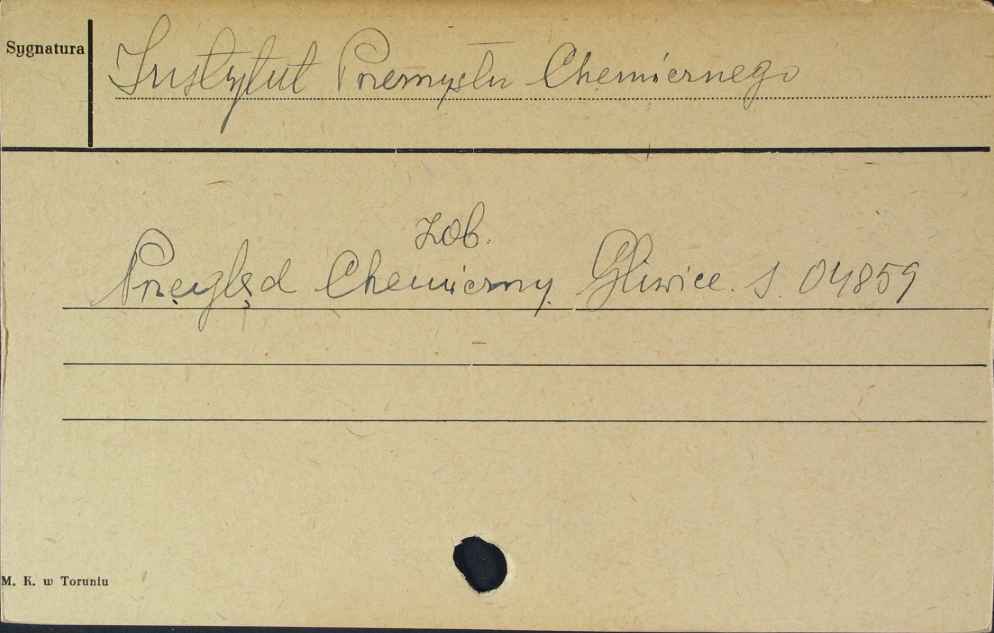 Sygnatura
Instytut Przemysłu Chemicznego
zob.
Przegląd Chemiczny Gliwice. S. 04859
M. K. w Toruniu